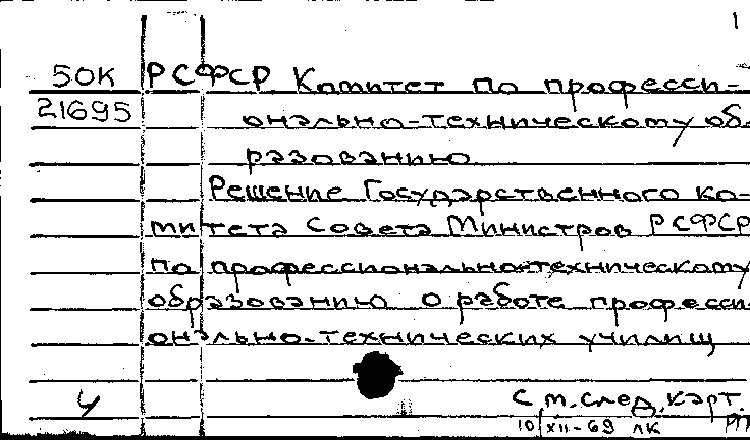 1
50К РСФСР Комитет по професси-
21695 онально-техническому об-
разованию
Решение Государственного ко-
митета Совета Министров РСФСР
по профессионально-техническому
образованию о работе професси-
онально-технических училищ
У См. след. карт.
10/XII-69 ЛК